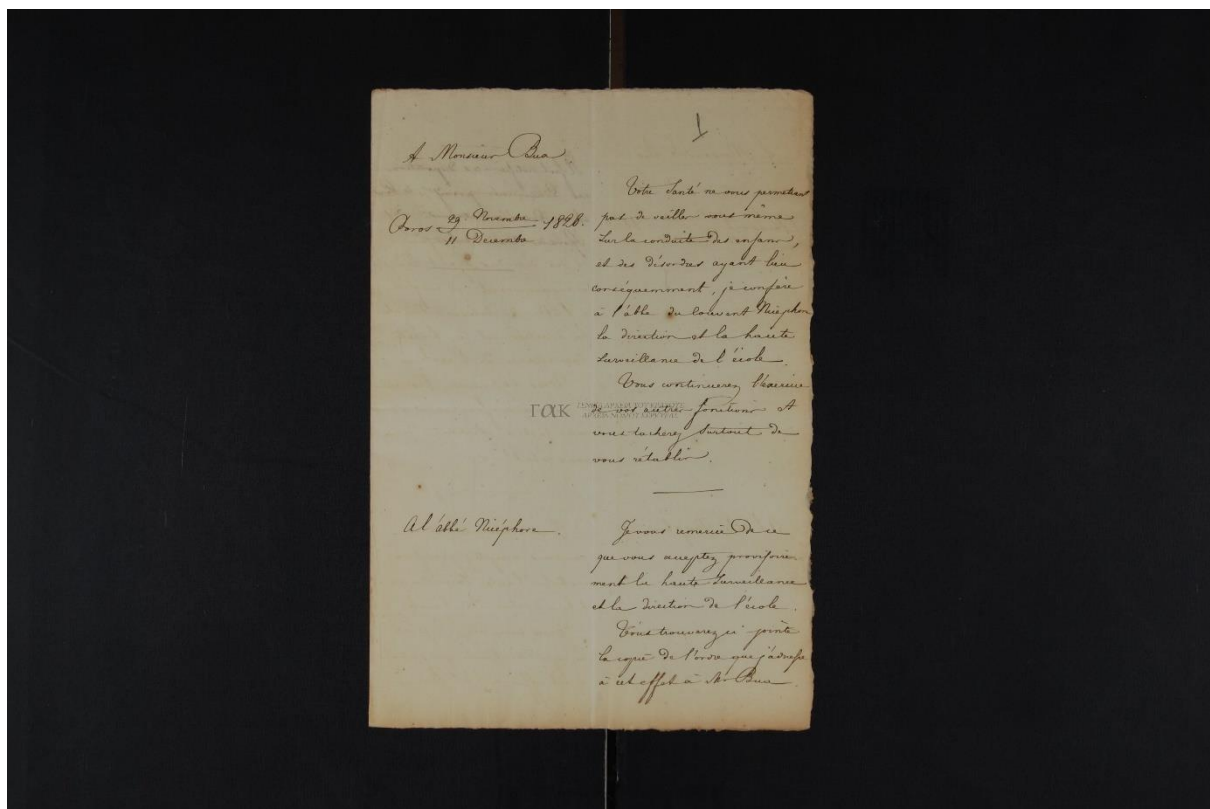 1
A Monsieur Bua
Poros 29 Novembre 1828.
11 Decembre
Votre Santé ne vous permettant
pas de veiller vous même
sur la conduite des enfans,
et des désordres ayant lieu
conséquemment, je confère
à l'abbé du couvent Nicéphore
la direction et la haute
surveillance de l'école.
Vous continuerez l'exercice
de vos autres fonctions et
vous tacherez surtout de
vous rétablir.
ΓΑΚ
A l'abbé Nicéphore.
Je vous remercie de ce
que vous acceptez provisoire
ment la haute surveillance
et la direction de l'école.
Vous trouverez ci jointe
la copie de l'ordre que j'adresse
à cet effet à Mr Bua.